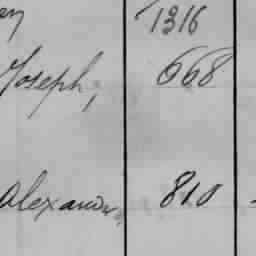 1316
Joseph, 668
Alexander, 810